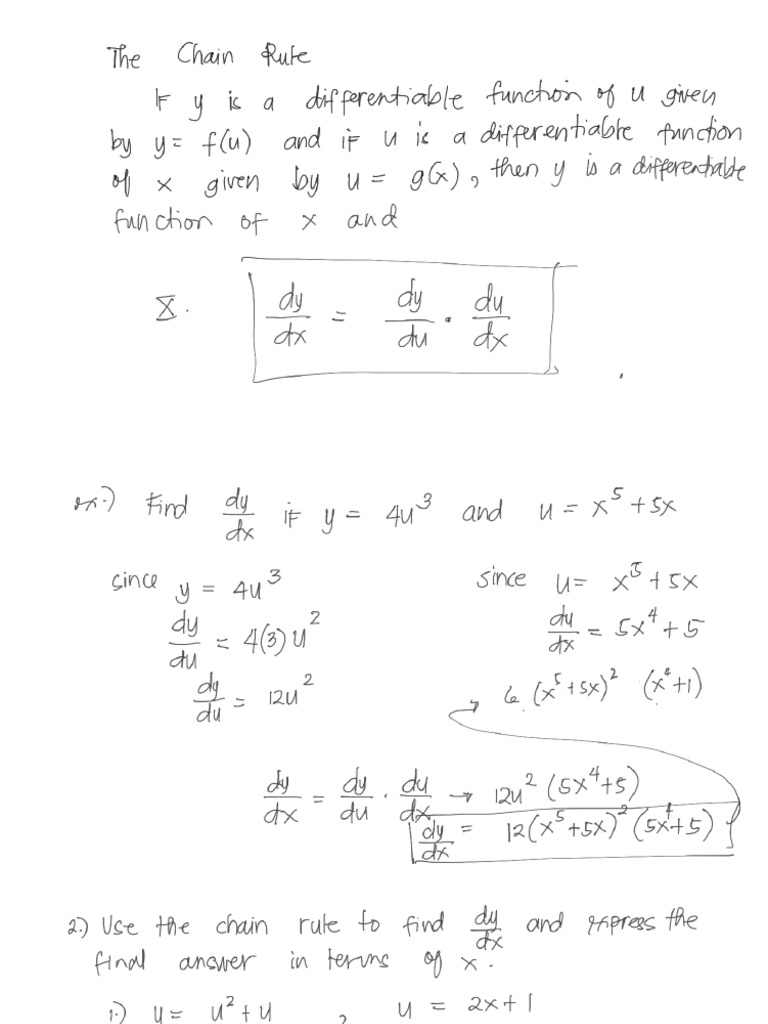 The Chain Rule
If y is a differentiable function of u given
by y = f(u) and if u is a differentiable function
of x given by u = g(x), then y is a differentiable
function of x and
X. dy/dx = dy/du · du/dx
ex.) Find dy/dx if y = 4u³ and u = x⁵ + 5x
since y = 4u³
dy/du = 4(3)u²
dy/du = 12u²
since u = x⁵ + 5x
du/dx = 5x⁴ + 5
→ 6 (x⁵ + 5x)² (x⁴ + 1)
dy/dx = dy/du · du/dx → 12u² (5x⁴ + 5)
dy/dx = 12(x⁵ + 5x)² (5x⁴ + 5)
2.) Use the chain rule to find dy/dx and express the
final answer in terms of x.
1.) y = u² + u , u = 2x + 1